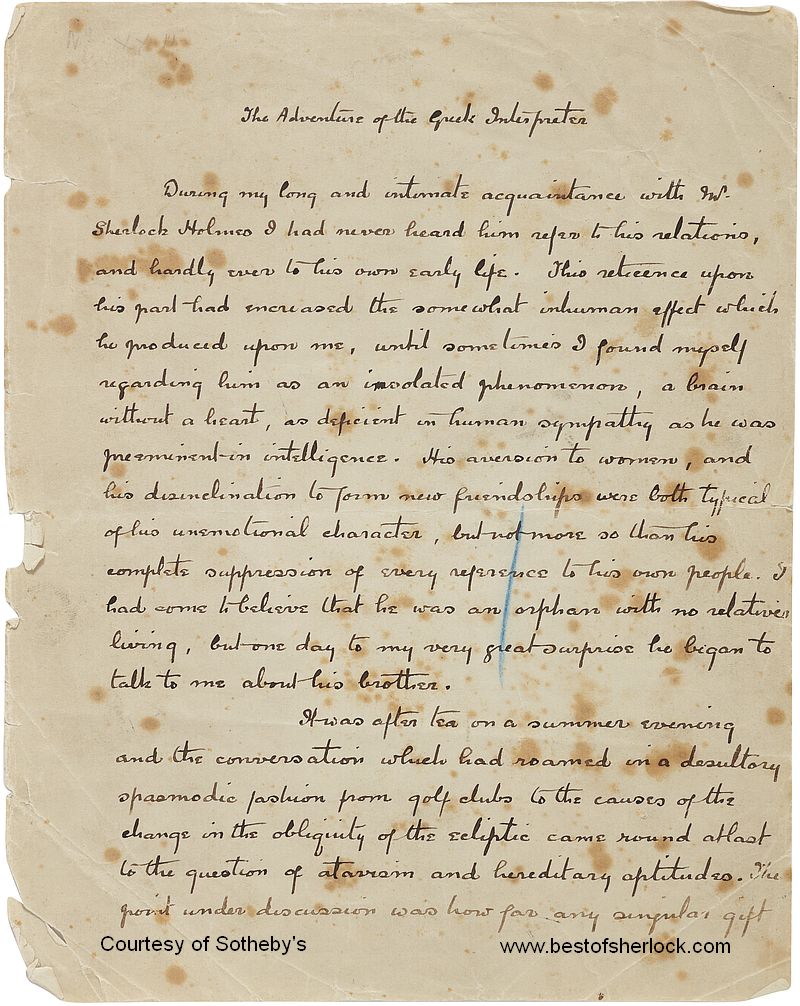 The Adventure of the Greek Interpreter
During my long and intimate acquaintance with Mr.
Sherlock Holmes I had never heard him refer to his relations,
and hardly ever to his own early life. This reticence upon
his part had increased the somewhat inhuman effect which
he produced upon me, until sometimes I found myself
regarding him as an insolated phenomenon, a brain
without a heart, as deficient in human sympathy as he was
preeminent in intelligence. His aversion to women, and
his disinclination to form new friendships were both typical
of his unemotional character, but not more so than his
complete suppression of every reference to his own people. I
had come to believe that he was an orphan with no relatives
living, but one day to my very great surprise he began to
talk to me about his brother.
It was after tea on a summer evening
and the conversation which had roamed in a desultory
spasmodic fashion from golf clubs to the causes of the
change in the obliquity of the ecliptic came round at last
to the question of atavism and hereditary aptitudes. The
point under discussion was how far any singular gift
Courtesy of Sotheby's www.bestofsherlock.com